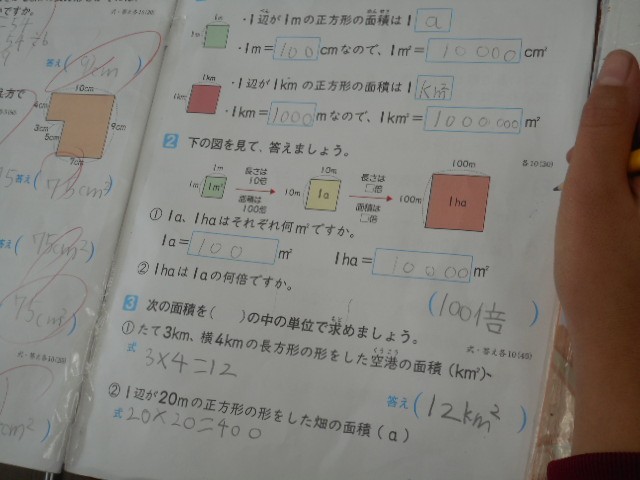 1m
1m
・1辺が1mの正方形の面積は1 a
・1m＝100cmなので、1m²＝10000cm²
1km
1km
・1辺が1kmの正方形の面積は1 km²
・1km＝1000mなので、1km²＝1000000m²
2 下の図を見て、答えましょう。
各10(20)
1m 1m 1m²
長さは10倍
面積は100倍
10m 10m 1a
長さは□倍
面積は□倍
100m 100m 1ha
① 1a、1haはそれぞれ何m²ですか。
1a＝100m² 1ha＝10000m²
② 1haは1aの何倍ですか。
(100倍)
3 次の面積を( )の中の単位で求めましょう。
式・答え各10(40)
① たて3km、横4kmの長方形の形をした空港の面積(km²)
式 3×4＝12
答え(12km²)
② 1辺が20mの正方形の形をした畑の面積(a)
式 20×20＝400
答え(9cm)
10cm
4cm
3cm
5cm
9cm
7cm
(75cm²)
答え(75cm²)
(75cm²)
式・答え各10(20)
cm²)